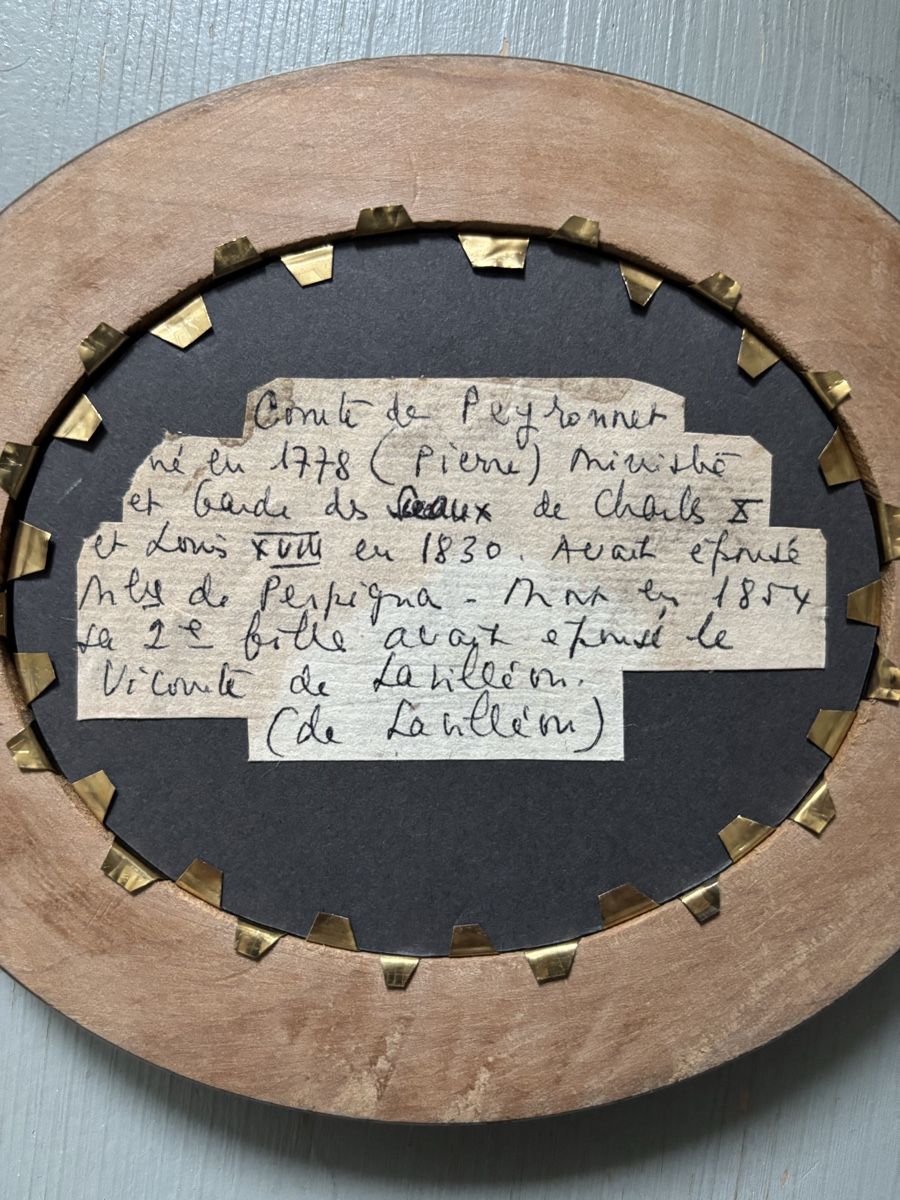 Comte de Peyronnet
né en 1778 (Pierre) Ministre
et Garde des Sceaux de Charles X
et Louis XVIII en 1830. Avait épousé
Mlle de Perpigna - Mort en 1854
sa 2e fille avait épousé le
Vicomte de Lavilléon.
(de Lavilléon)